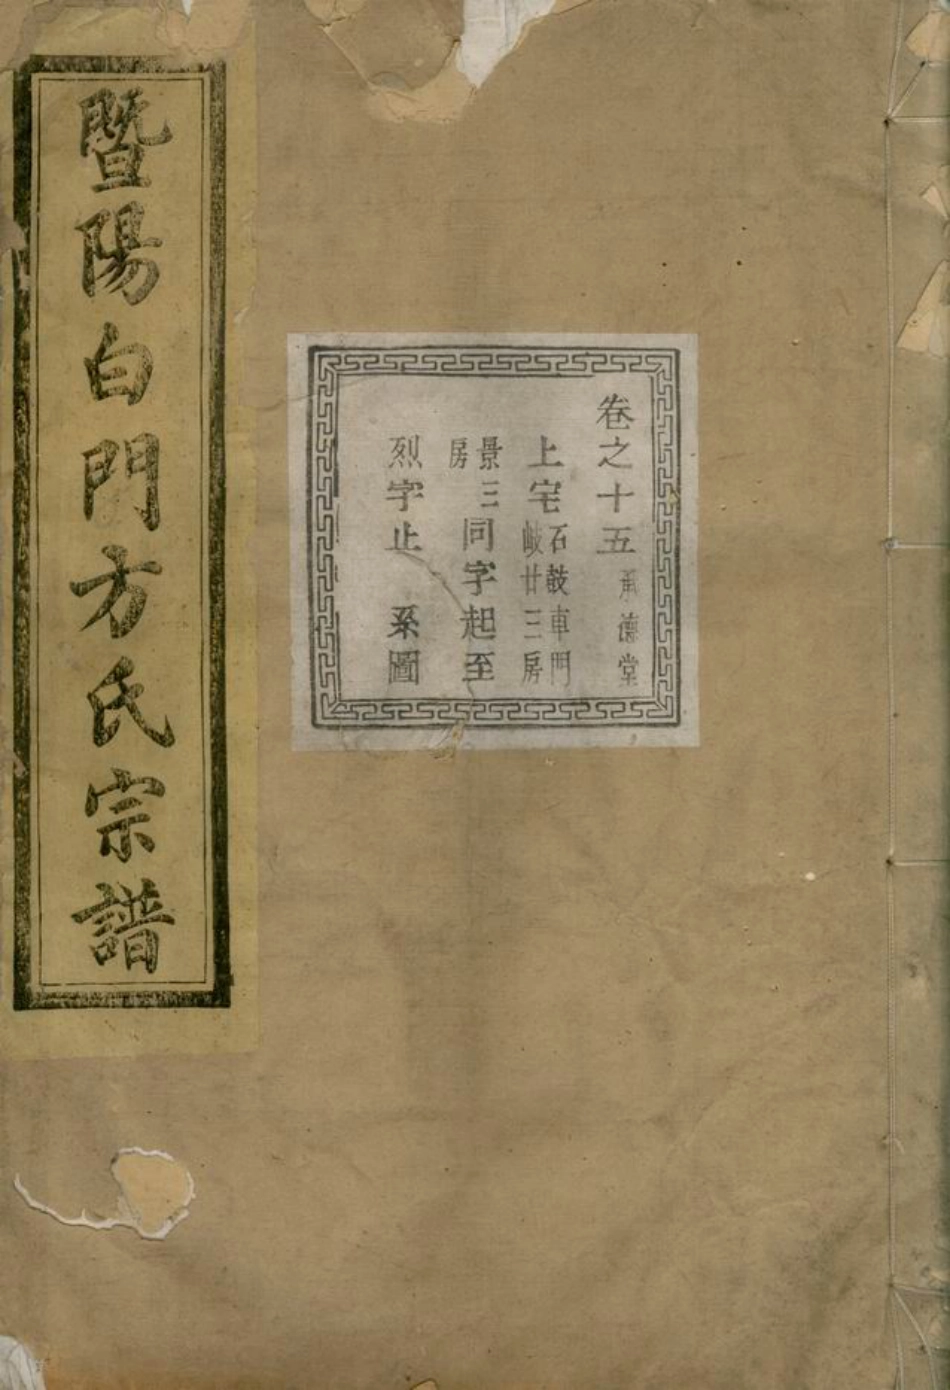 暨陽白門方氏宗譜
卷之十五 承德堂
上宅 石鼓車門
岐廿三房
景三房 同字起至
烈字止 系圖